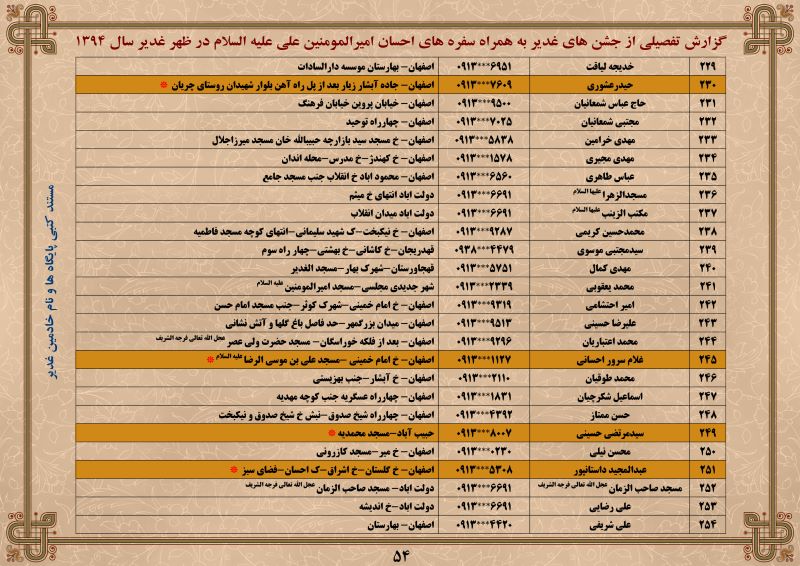 گزارش تفصیلی از جشن های غدیر به همراه سفره های احسان امیرالمومنین علی علیه السلام در ظهر غدیر سال ۱۳۹۴
۲۲۹ خدیجه لیاقت ۰۹۱۳***۶۹۵۱ اصفهان- بهارستان موسسه دارالسادات
۲۳۰ حیدرعشوری ۰۹۱۳***۷۶۰۹ اصفهان- جاده آبشار زیار بعد از پل راه آهن بلوار شهیدان روستای چریان *
۲۳۱ حاج عباس شمعانیان ۰۹۱۳***۹۵۰۰ اصفهان- خیابان پروین خیابان فرهنگ
۲۳۲ مجتبی شمعانیان ۰۹۱۳***۷۰۲۵ اصفهان- چهارراه توحید
۲۳۳ مهدی خرامین ۰۹۱۳***۵۸۳۸ اصفهان- خ مسجد سید بازارچه حبیبالله خان مسجد میرزاجلال
۲۳۴ مهدی مجیری ۰۹۱۳***۱۵۷۸ اصفهان- خ کهندژ-خ مدرس-محله اندان
۲۳۵ عباس طاهری ۰۹۱۳***۶۵۶۰ اصفهان- محمود اباد خ انقلاب جنب مسجد جامع
۲۳۶ مسجدالزهرا علیها السلام ۰۹۱۳***۶۶۹۱ دولت اباد انتهای خ میثم
۲۳۷ مکتب الزینب علیها السلام ۰۹۱۳***۶۶۹۱ دولت اباد میدان انقلاب
۲۳۸ محمدحسین کریمی ۰۹۱۳***۹۲۸۷ اصفهان- خ نیکبخت-ک شهید سلیمانی-انتهای کوچه مسجد فاطمیه
۲۳۹ سیدمجتبی موسوی ۰۹۳۸***۴۴۷۹ قهدریجان-خ کاشانی-خ بهشتی-چهار راه سوم
۲۴۰ مهدی کمال ۰۹۱۳***۵۷۵۱ قهجاورستان-شهرک بهار-مسجد الغدیر
۲۴۱ محمد یعقوبی ۰۹۱۳***۲۳۳۹ شهر جدیدی مجلسی-مسجد امیرالمومنین علیه السلام
۲۴۲ امیر احتشامی ۰۹۱۳***۹۳۱۹ اصفهان- خ امام خمینی-شهرک کوثر-جنب مسجد امام حسن
۲۴۳ علیرضا حسینی ۰۹۱۳***۹۵۱۳ اصفهان- میدان بزرگمهر-حد فاصل باغ گلها و آتش نشانی
۲۴۴ محمد اعتباریان ۰۹۱۳***۹۲۹۶ اصفهان- بعد از فلکه خوراسگان- مسجد حضرت ولی عصر عجل الله تعالی فرجه الشریف
۲۴۵ غلام سرور احسانی ۰۹۱۳***۱۱۲۷ اصفهان- خ امام خمینی -مسجد علی بن موسی الرضا علیه السلام *
۲۴۶ محمد طوقیان ۰۹۱۳***۲۱۱۰ اصفهان- خ آبشار-جنب بهزیستی
۲۴۷ اسماعیل شکرچیان ۰۹۱۳***۱۸۳۱ اصفهان- چهارراه عسگریه جنب کوچه مهدیه
۲۴۸ حسن ممتاز ۰۹۱۳***۴۳۹۲ اصفهان- چهارراه شیخ صدوق-نبش خ شیخ صدوق و نیکبخت
۲۴۹ سیدمرتضی حسینی ۰۹۱۳***۸۰۰۷ حبیب آباد-مسجد محمدیه *
۲۵۰ محسن نیلی ۰۹۱۳***۰۲۳۰ اصفهان- خ میر-مسجد کازرونی
۲۵۱ عبدالمجید داستانپور ۰۹۱۳***۵۳۰۸ اصفهان- خ گلستان-خ اشراق-ک احسان-فضای سبز *
۲۵۲ مسجد صاحب الزمان عجل الله تعالی فرجه الشریف ۰۹۱۳***۶۶۹۱ دولت اباد- مسجد صاحب الزمان عجل الله تعالی فرجه الشریف
۲۵۳ علی رضایی ۰۹۱۳***۶۶۹۱ دولت اباد-خ اندیشه
۲۵۴ علی شریفی ۰۹۱۳***۴۴۲۰ اصفهان- بهارستان
مستند کتبی پایگاه ها و نام خادمین غدیر
۵۴